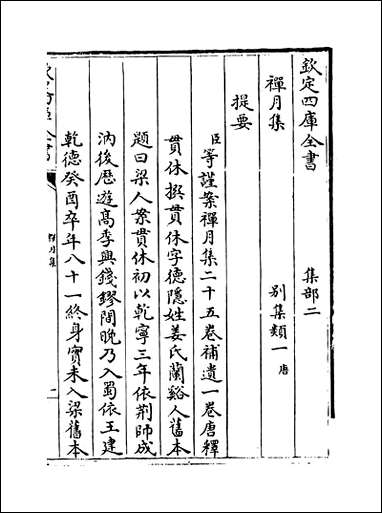 欽定四庫全書 集部二
禪月集 別集類一 唐
提要
臣等謹案禪月集二十五卷補遺一卷唐釋
貫休撰貫休字德隱姓姜氏蘭谿人舊本
題曰梁人案貫休初以乾寧三年依荆師成
汭後歴遊髙季興錢鏐間晚乃入蜀依王建
乾德癸酉卒年八十一終身實未入梁舊本
禪月集